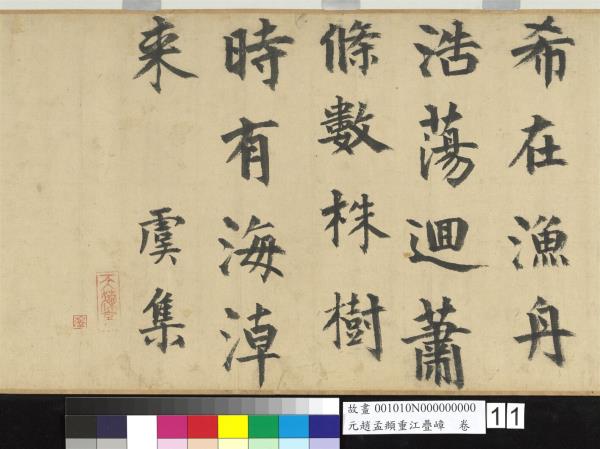 希在漁舟
浩蕩迴蕭
條數株樹
時有海淖
來 虞集
故畫 001010N000000000
元趙孟頫重江疊嶂 卷
11